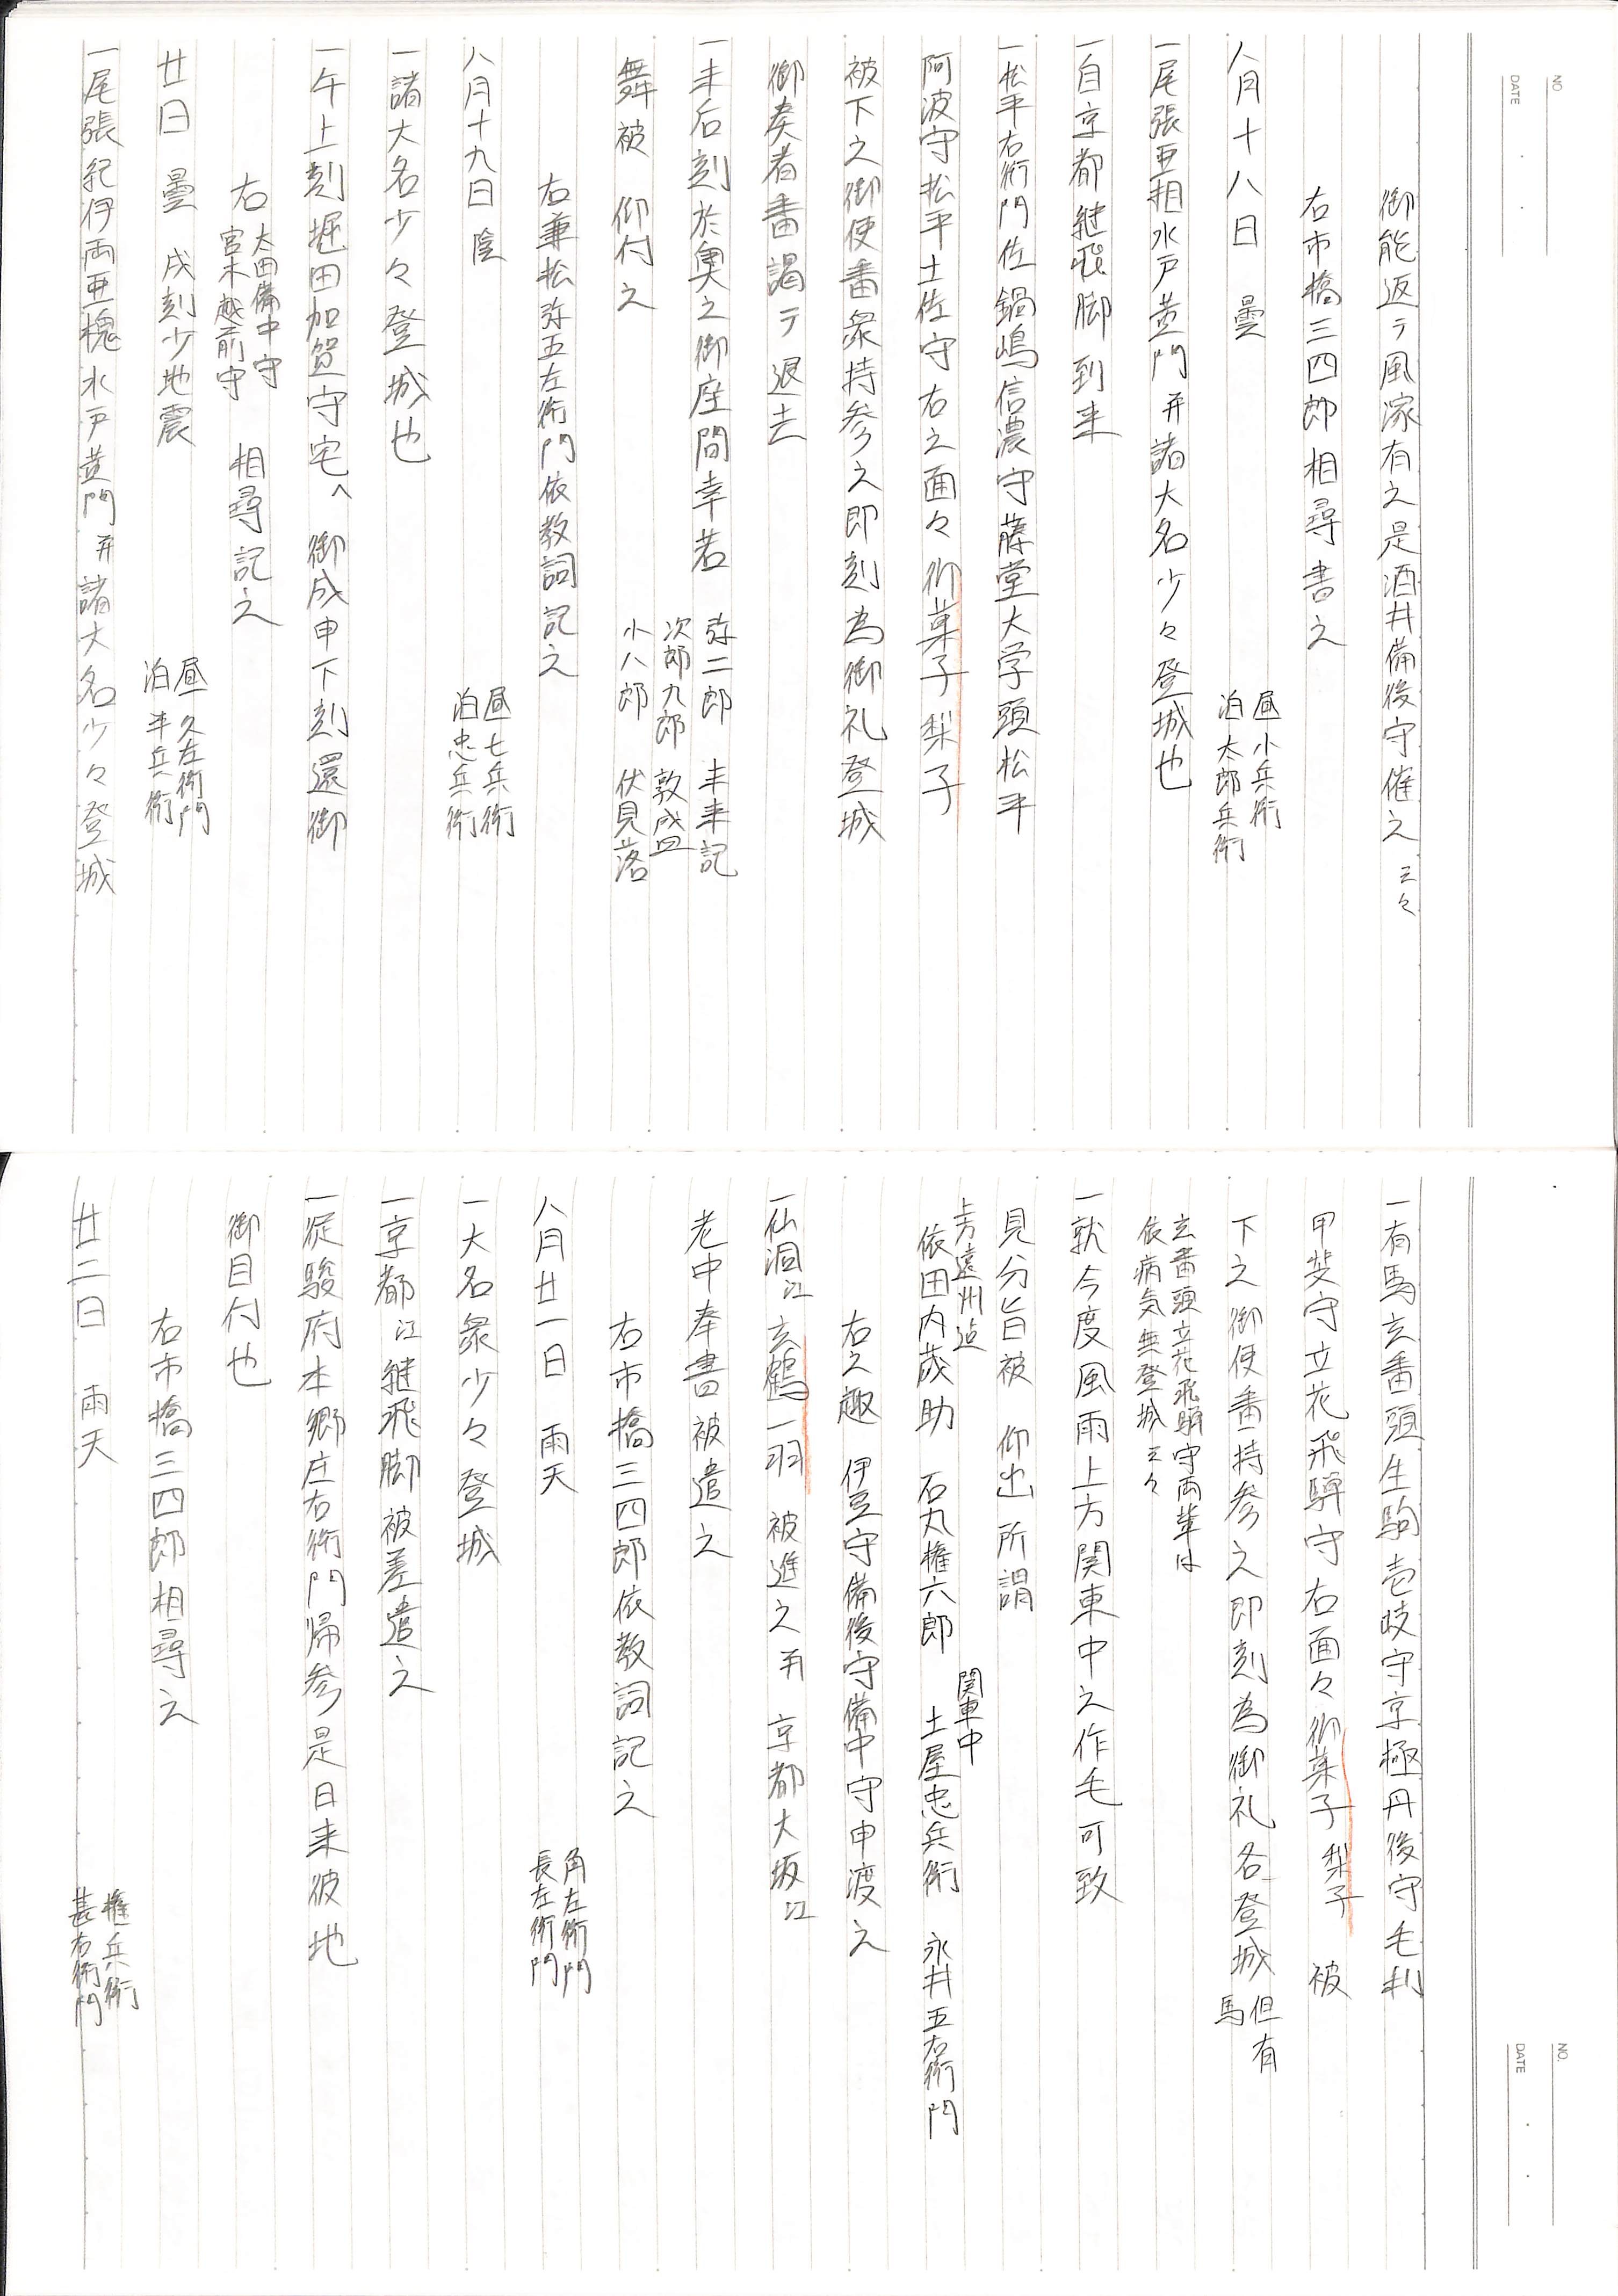 NO.
DATE
御能返テ風流有之是酒井備後守催之 云々
右市橋三四郎相尋書之
八月十八日 曇 昼 小兵衛
泊 太郎兵衛
一尾張亜相水戸黄門并諸大名少々登城也
一自京都継飛脚到来
一松平右衛門佐鍋嶋信濃守藤堂大学頭松平
阿波守松平土佐守右之面々 御菓子 梨子
被下之御使番衆持参之即刻為御礼登城
御奏者番謁テ退去
一未后刻於奥之御座間幸若 弥二郎 未来記
次郎九郎 敦盛
小八郎 伏見落
舞被 仰付之
右兼松弥五左衛門依教詞記之
八月十九日 陰 昼 七兵衛
泊 忠兵衛
一諸大名少々登城也
一午上刻堀田加賀守宅へ 御成申下刻還御
右 太田備中守
宮木越前守 相尋記之
廿日 曇 戌刻少地震 昼 久左衛門
泊 半兵衛
一尾張紀伊両亜槐水戸黄門并諸大名少々登城
NO.
DATE
一有馬玄番頭生駒壱岐守京極丹後守毛利
甲斐守立花飛騨守右面々 御菓子 梨子 被
下之御使番持参之即刻為御礼各登城 但有
馬
玄番頭立花飛騨守両輩は
依病気無登城 云々
一就今度風雨上方関東中之作毛可致
見分旨被 仰出 所謂
上方遠州迄
依田内蔵助 石丸権六郎
関東中
土屋忠兵衛 永井五右衛門
右之趣 伊豆守備後守備中守申渡之
一仙洞江 玄鶴一羽 被進之并 京都大坂江
老中奉書被遣之
右市橋三四郎依教詞記之
八月廿一日 雨天 角左衛門
長左衛門
一大名衆少々登城
一京都江継飛脚被差遣之
一従駿府本郷庄右衛門帰参是日来彼地
御目付也
右市橋三四郎相尋之
廿二日 雨天 権兵衛
甚右衛門